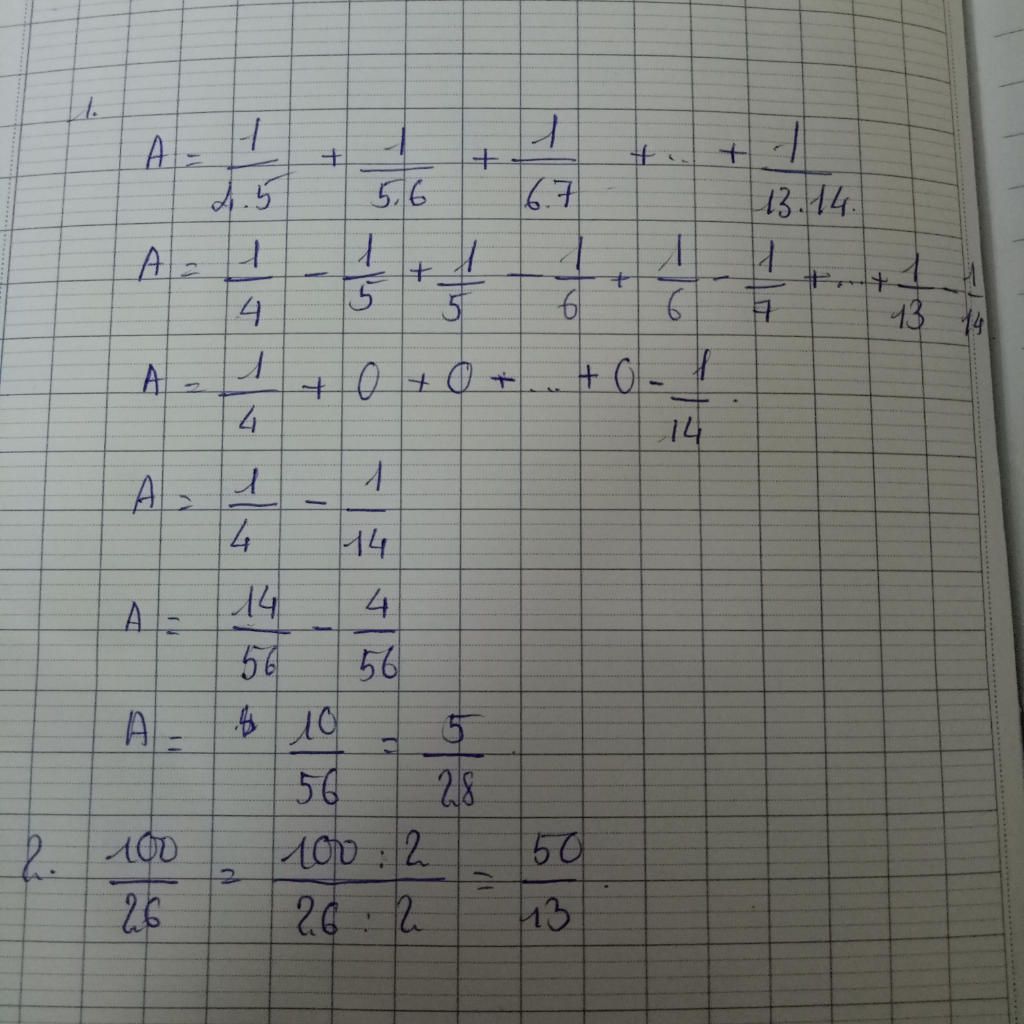 1.
A = 1/4.5 + 1/5.6 + 1/6.7 + ... + 1/13.14.
A = 1/4 - 1/5 + 1/5 - 1/6 + 1/6 - 1/7 + ... + 1/13 - 1/14
A = 1/4 + 0 + 0 + ... + 0 - 1/14.
A = 1/4 - 1/14
A = 14/56 - 4/56
A = 10/56 = 5/28.
2. 100/26 = 100 : 2/26 : 2 = 50/13.